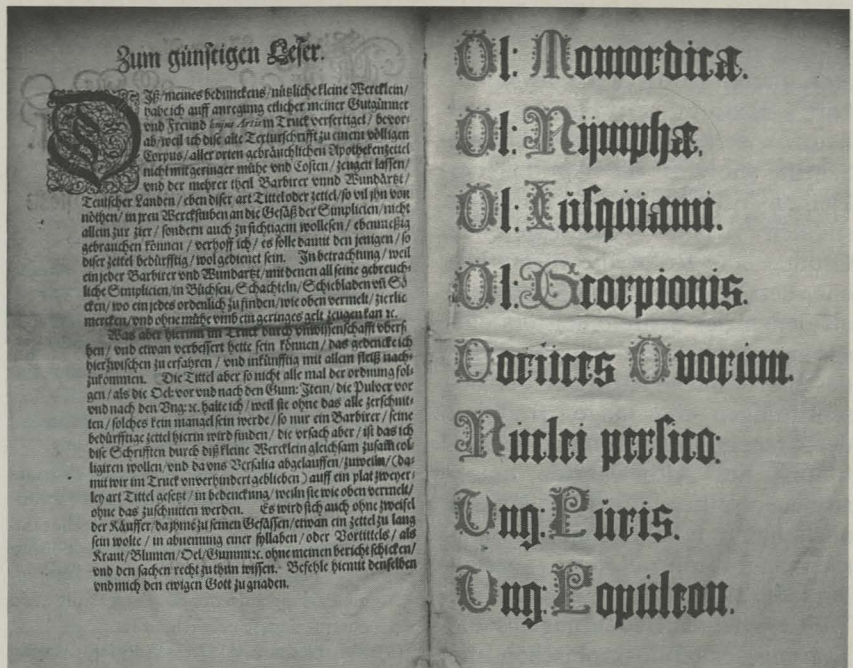 Zum günstigen Leser.
DIß / meines bedunckens / nützliche kleine Wercklein /
habe ich auff anregung etlicher meiner Gutgünner
vnd Freund huius Artis in Truck verfertiget / bevor-
ab / weil ich dise alte Texturschrifft zu einem völligen
Corpus / aller orten gebräuchlichen Apothekenzettel
nicht mit geringer mühe vnd Costen / zeugen lassen /
vnd der mehrer theil Barbirer vnnd Wundärtzt /
Teutscher Landen / eben diser art Tittel oder zettel / so vil jhn von
nöthen / in jren Werckstuben an die Gefäß der Simplicien / nicht
allein zur zier / sondern auch zu sichtigem wollesen / ebenmeßig
gebrauchen können / verhoff ich / es solle damit den jenigen / so
diser zettel bedürfftig / wol gedienet sein. In betrachtung / weil
ein jeder Barbirer vnd Wundartzt / mit denen all seine gebreuch-
liche Simplicien / in Büchsen / Schachteln / Schiebladen vñ Sä
cken / wo ein jedes ordenlich zu finden / wie oben vermelt / zierlic
mercken / vnd ohne mühe vmb ein geringes gelt zeugen kan ꝛc.
Was aber hierinn im Truck durch vnwissenschafft vbers
hen / vnd etwan verbessert hette sein können / das gedencke ich
hierzwischen zu erfahren / vnd inkünfftig mit allem fleiß nach-
zukommen. Die Tittel aber so nicht alle mal der ordnung fol-
gen / als die Oel: vor vnd nach den Gum: Item / die Pulver vor
vnd nach den Vng: ꝛc. halte ich / weil sie ohne das alle zerschnit-
ten / solches kein mangel sein werde / so nur ein Barbirer / seine
bedürfftige zettel hierin wird finden / die vrsach aber / ist das ich
dise Schrifften durch diß kleine Wercklein gleichsam zusam̃ col-
ligiren wollen / vnd da vns Versalia abgelauffen / zuweiln / (da-
mit wir im Truck vnverhindert geblieben) auff ein plat zweyer-
ley art Tittel gesetzt / in bedenckung / weiln sie wie oben vermelt /
ohne das zuschnitten werden. Es wird sich auch ohne zweifel
der Käuffer / da jhme zu seinen Gefässen / etwan ein zettel zu lang
sein wolte / in abnemung einer syllaben / oder Vortittels / als
Kraut / Blumen / Oel / Gummi ꝛc. ohne meinen bericht schicken /
vnd den sachen recht zu thun wissen. Befehle hiemit denselben
vnd mich den ewigen Gott zu gnaden.
Ol: Momordica.
Ol: Nijmphæ.
Ol: Iusquiami.
Ol: Scorpionis.
Corticis Ovorum.
Nuclei persico:
Vng: Püris.
Vng: Populeon.